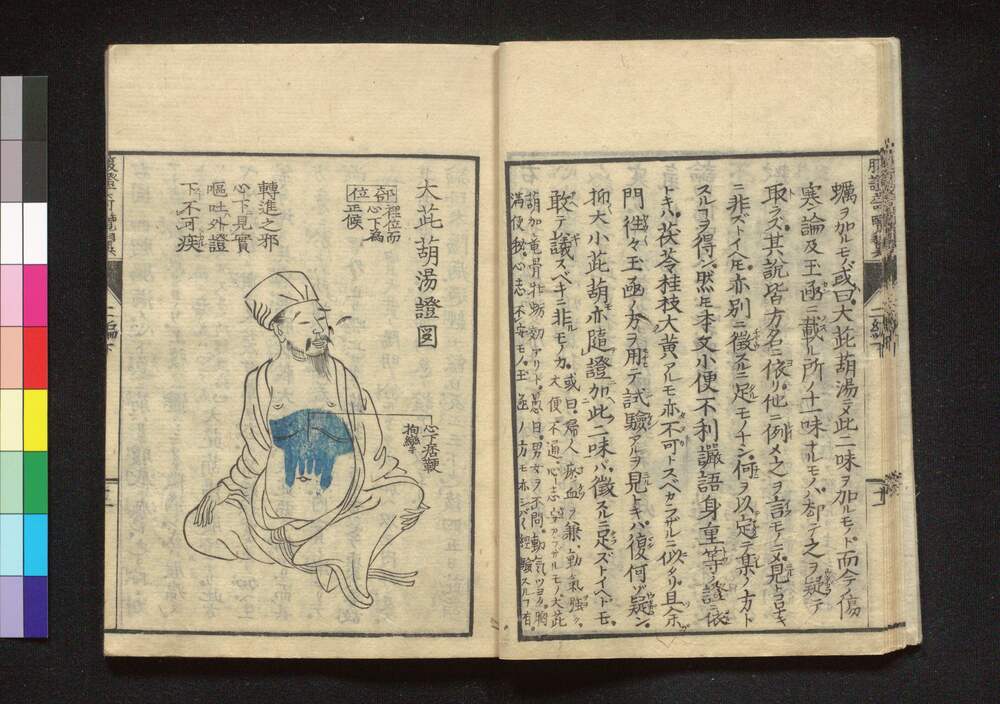 蠣ヲ加ルモノハ或曰大茈胡湯ニメ此二味ヲ加ルモノト而今ノ傷
寒論及玉凾ニ載ル所ノ十一味ナルモノハ却テ之ヲ疑テ
取ラズ其說皆方名ニ依リ他ニ例メ之ヲ言モノニメ見トコロナキ
ニ非ズトイヘ𪜈亦別ニ徵スルニ足モノナシ何ヲ以定テ集ノ方ト
スルヿヲ得ン然𪜈本文小便不利讝語身重等ノ證ニ依
トキハ茯苓桂枝大黄アルモ亦不可トスベカラザルニ似タリ且余
門徃々玉凾ノ方ヲ用テ試驗アルヲ見トキハ復何ゾ疑ン
抑大小茈葫亦隨證加此二味ハ徵スルニ足ズトイヘドモ
敢テ議スベキニ非ルモノカ或曰婦人瘀血ヲ兼動氣強ク
大便不通心志寧カラザルモノ大茈
葫加竜骨牡蛎効アリト愚曰男女ヲ不問動気ツヨク胸
滿便秘心志不安モノ玉凾ノ方モ亦シバ〱経驗スルヿ有
大茈葫湯證圖
裡位而
心下為
位正候
轉進之邪
心下見實
嘔吐外證
下不可疾
心下痞鞕
拘攣